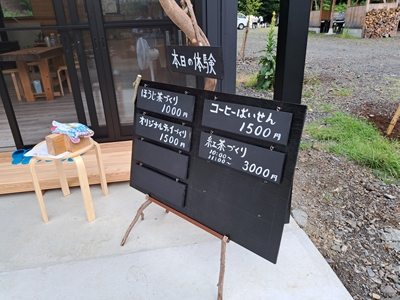 本日の体験
ほうじ茶づくり
1000円
オリジナルチャイづくり
1500円
コーヒーばいせん
1500円
紅茶づくり
10:00〜
11:00〜
3000円